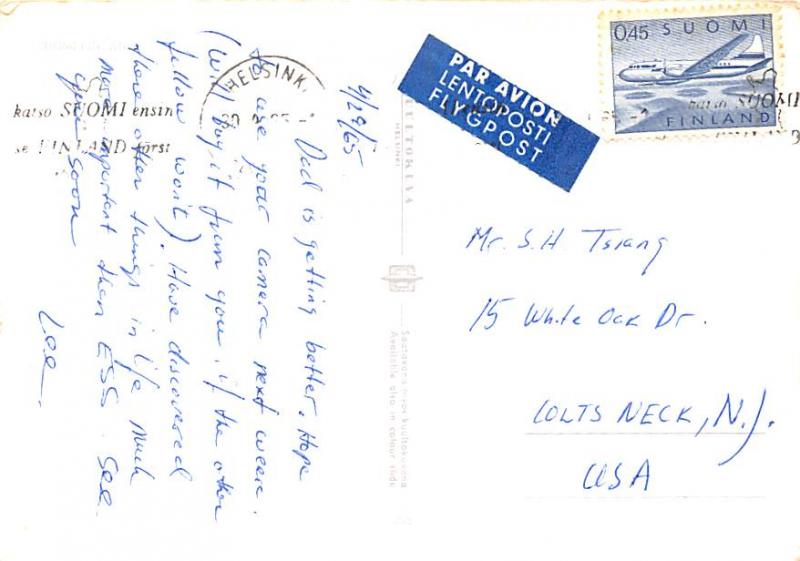 4/29/65
Dad is getting better. Hope
to use your camera next week.
(Will buy it from you, if the other
fellow won't). Have discovered
there other things in life much
more important then ESS. See
you soon
Lee.
HELSINKI
katso SUOMI ensin
se FINLAND först
KULTOKUVA
HELSINKI
Saatavana myös kuultokuvina
Available also in colour slide
PAR AVION
LENTOPOSTI
FLYGPOST
0,45 SUOMI
FINLAND
katso SUOMI
Mr. S. H. Tsiang
15 White Oak Dr.
COLTS NECK, N.J.
USA